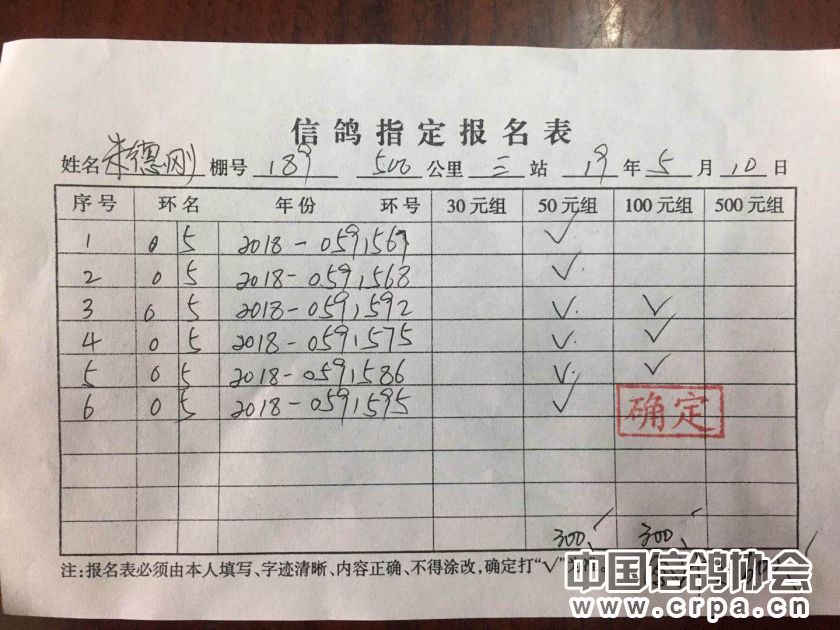 信鸽指定报名表
姓名 朱德刚 棚号 189 500 公里 三 站 19 年 5 月 10 日
序号 环名 年份 环号 30元组 50元组 100元组 500元组
1 0 5 2018-0591569 √
2 0 5 2018-0591568 √
3 0 5 2018-0591592 √ √
4 0 5 2018-0591575 √ √
5 0 5 2018-0591586 √ √
6 0 5 2018-0591595 √
确定
300 300
注:报名表必须由本人填写、字迹清晰、内容正确、不得涂改,确定打“√”
中国信鸽协会
www.crpa.cn